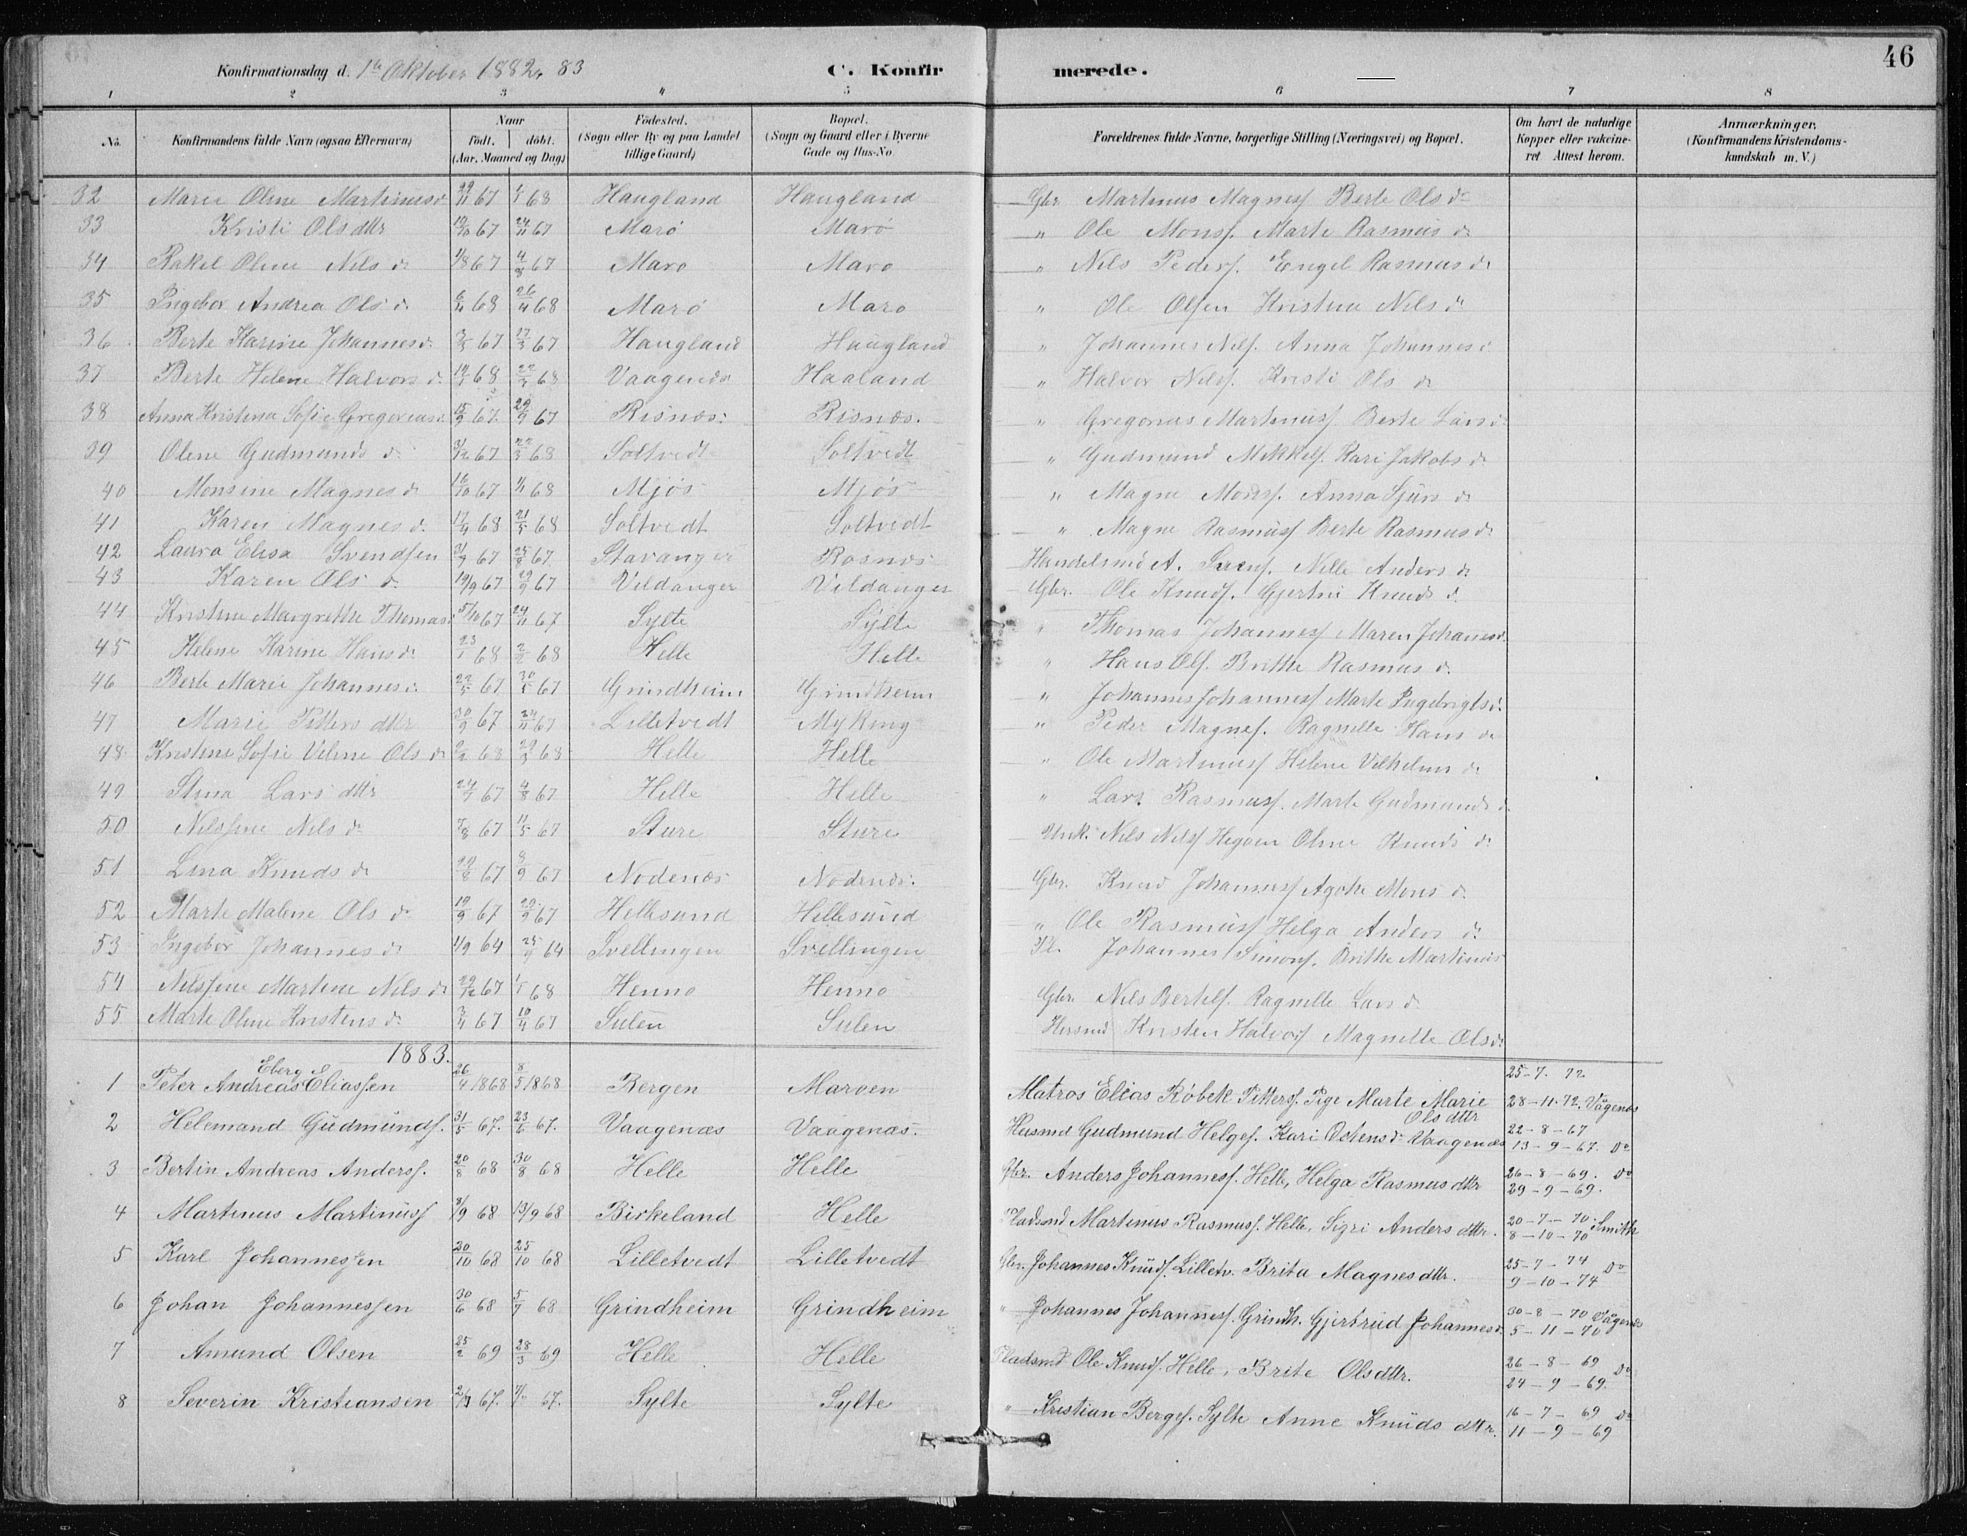 46
Konfirmationsdag d. 1ste Oktober 1882. 83 C. Konfirmerede.
1 2 3 4 5 6 7 8
No. Konfirmandens fulde Navn (ogsaa Efternavn) Naar født. døbt. (Aar, Maaned og Dag) Fødested. (Sogn eller By og paa Landet tillige Gaard) Bopæl. (Sogn og Gaard eller i Byerne Gade og Hus-No. Forældrenes fulde Navne, borgerlige Stilling (Næringsvei) og Bopæl. Om havt de naturlige Kopper eller vakcineret Attest herom. Anmærkninger. (Konfirmandens Kristendomskundskab m. V.)
32 Marie Oline Martinus d. 67 68 Haugland Haugland Gbr. Martinus Magnes. Berte Ols d.
33 Kristi Ols dttr 67 67 Marø Marø " Ole Mons. Marte Rasmus d.
34 Rakel Oline Nils d. 67 67 Marø Marø " Nils Peders. Engel Rasmus d.
35 Ingebor Andrea Ols d. 6/4 68 26/4 68 Marø Marø " Ole Olsen Kristina Nils d.
36 Berte Karine Johannes d. 67 67 Haugland Haugland " Johannes Nils. Anna Johannes d.
37 Berte Helene Halvors d. 68 68 Vaagenæs Haaland " Halvor Nils. Kristi Ols d.
38 Anna Kristina Sofie Gregorius d. 15/9 67 29/9 67 Risnæs. Risnæs. " Gregorius Martinus. Berte Lars d.
39 Olene Gudmunds d. 67 68 Soltvedt Soltvedt " Gudmund Mikkels. Kari Jakobs d.
40 Monsine Magnes d. 67 68 Mjøs Mjøs " Magne Mons. Anna Sjurs d.
41 Karen Magnes d. 68 21/5 68 Soltvedt Soltvedt " Magne Rasmus. Berte Rasmus d.
42 Laura Elisa Svendsen 67 67 Stavanger Rosnæs Handelsmd A. Nille Anders d.
43 Karen Ols d. 19/9 67 29/9 67 Vildanger Vildanger Gbr. Ole Knuds. Gjertrü Knuds d.
44 Kristine Margrethe Thomas 5/10 67 24/11 67 Sylte Sylte " Thomas Johannes. Maren Johannes d.
45 Helene Karine Hans d. 23/1 68 2/2 68 Helle Helle " Hans Ols. Brithe Rasmus d.
46 Berte Marie Johannes d. 22/5 67 30/5 67 Grindheim Grindheim " Johannes Johannes. Marte Ingebrigts d.
47 Marie Petters dttr 30/9 67 24/11 67 Lilletvedt Myking " Peder Magnes. Ragnille Hans d.
48 Kristine Sofie Veline Ols d. 68 68 Helle Helle " Ole Martinus. Helene Vilhelms d.
49 Stina Lars dttr 24/7 67 4/8 67 Helle Helle " Lars Rasmus. Marte Gudmunds d.
50 Nilsine Nils d. 67 67 Sture Sture Nils Nils. Oline Knuds d.
51 Lina Knuds d. 67 8/9 67 Nodenæs Nodenæs. Gbr. Knud Johannes. Agathe Mons d.
52 Marte Malene Ols d. 19/9 67 29/9 67 Hellesund Hellesund " Ole Rasmus. Helga Anders d.
53 Ingebor Johannes d. 1/9 64 25/9 64 Svellingen Svellingen Pl. Johannes Simons. Brithe Martinus
54 Nilsine Martine Nils d. 29/12 67 68 Henno Henno Gbr. Nils Bertels. Ragnille Lars d.
55 Marte Oline Kristens d. 3/4 67 10/4 67 Sulen Sulen Husmd Kristen Halvors. Magnille Ols d.
1883.
1 Peter Andreas Eberg Eliassen 26/4 1868 8/5 1868 Bergen Marøen Matros Elias Røbek Petters. Pige Marte Marie Ols dttr 25-7-72 28-11-72. Vågenes
2 Helemand Gudmunds. 31/5 67. 23/6 67. Vaagenæs Vaagenæs. Husmd Gudmund Helges. Kari Ostens d. Vaagenæs 22-8-67 13-9-67. Do
3 Bertin Andreas Anders. 20/8 68 30/8 68 Helle Helle Gbr. Anders Johannes. Helle, Helga Rasmus dttr 26-8-69. 29-9-69. Do
4 Martinus Martinus. 3/9 68 13/9 68 Birkeland Helle Pladsmd Martinus Rasmus. Helle, Sigri Anders dttr. 20-7-70 8-10-70 Smith
5 Karl Johannessen 20/10 68 25/10 68 Lilletvedt Lilletvedt Gbr. Johannes Knuds. Lilletv. Brita Magnes dttr. 25-7-74 9-10-74 Do
6 Johan Johannessen 30/6 68 5/7 68 Grindheim Grindheim " Johannes Johannes. Grindh. Gjertrud Johannes d. 30-8-70 5-11-70 Vågenes
7 Amund Olsen 25/2 69 28/3 69 Helle Helle Pladsmd Ole Knuds. Helle, Brite Olsdttr. 26-8-69 24-9-69. Do
8 Severin Kristiansen 67. 67. Sylte Sylte " Kristian Berges. Sylte Anne Knuds dttr. 16-7-69 11-9-69 Do